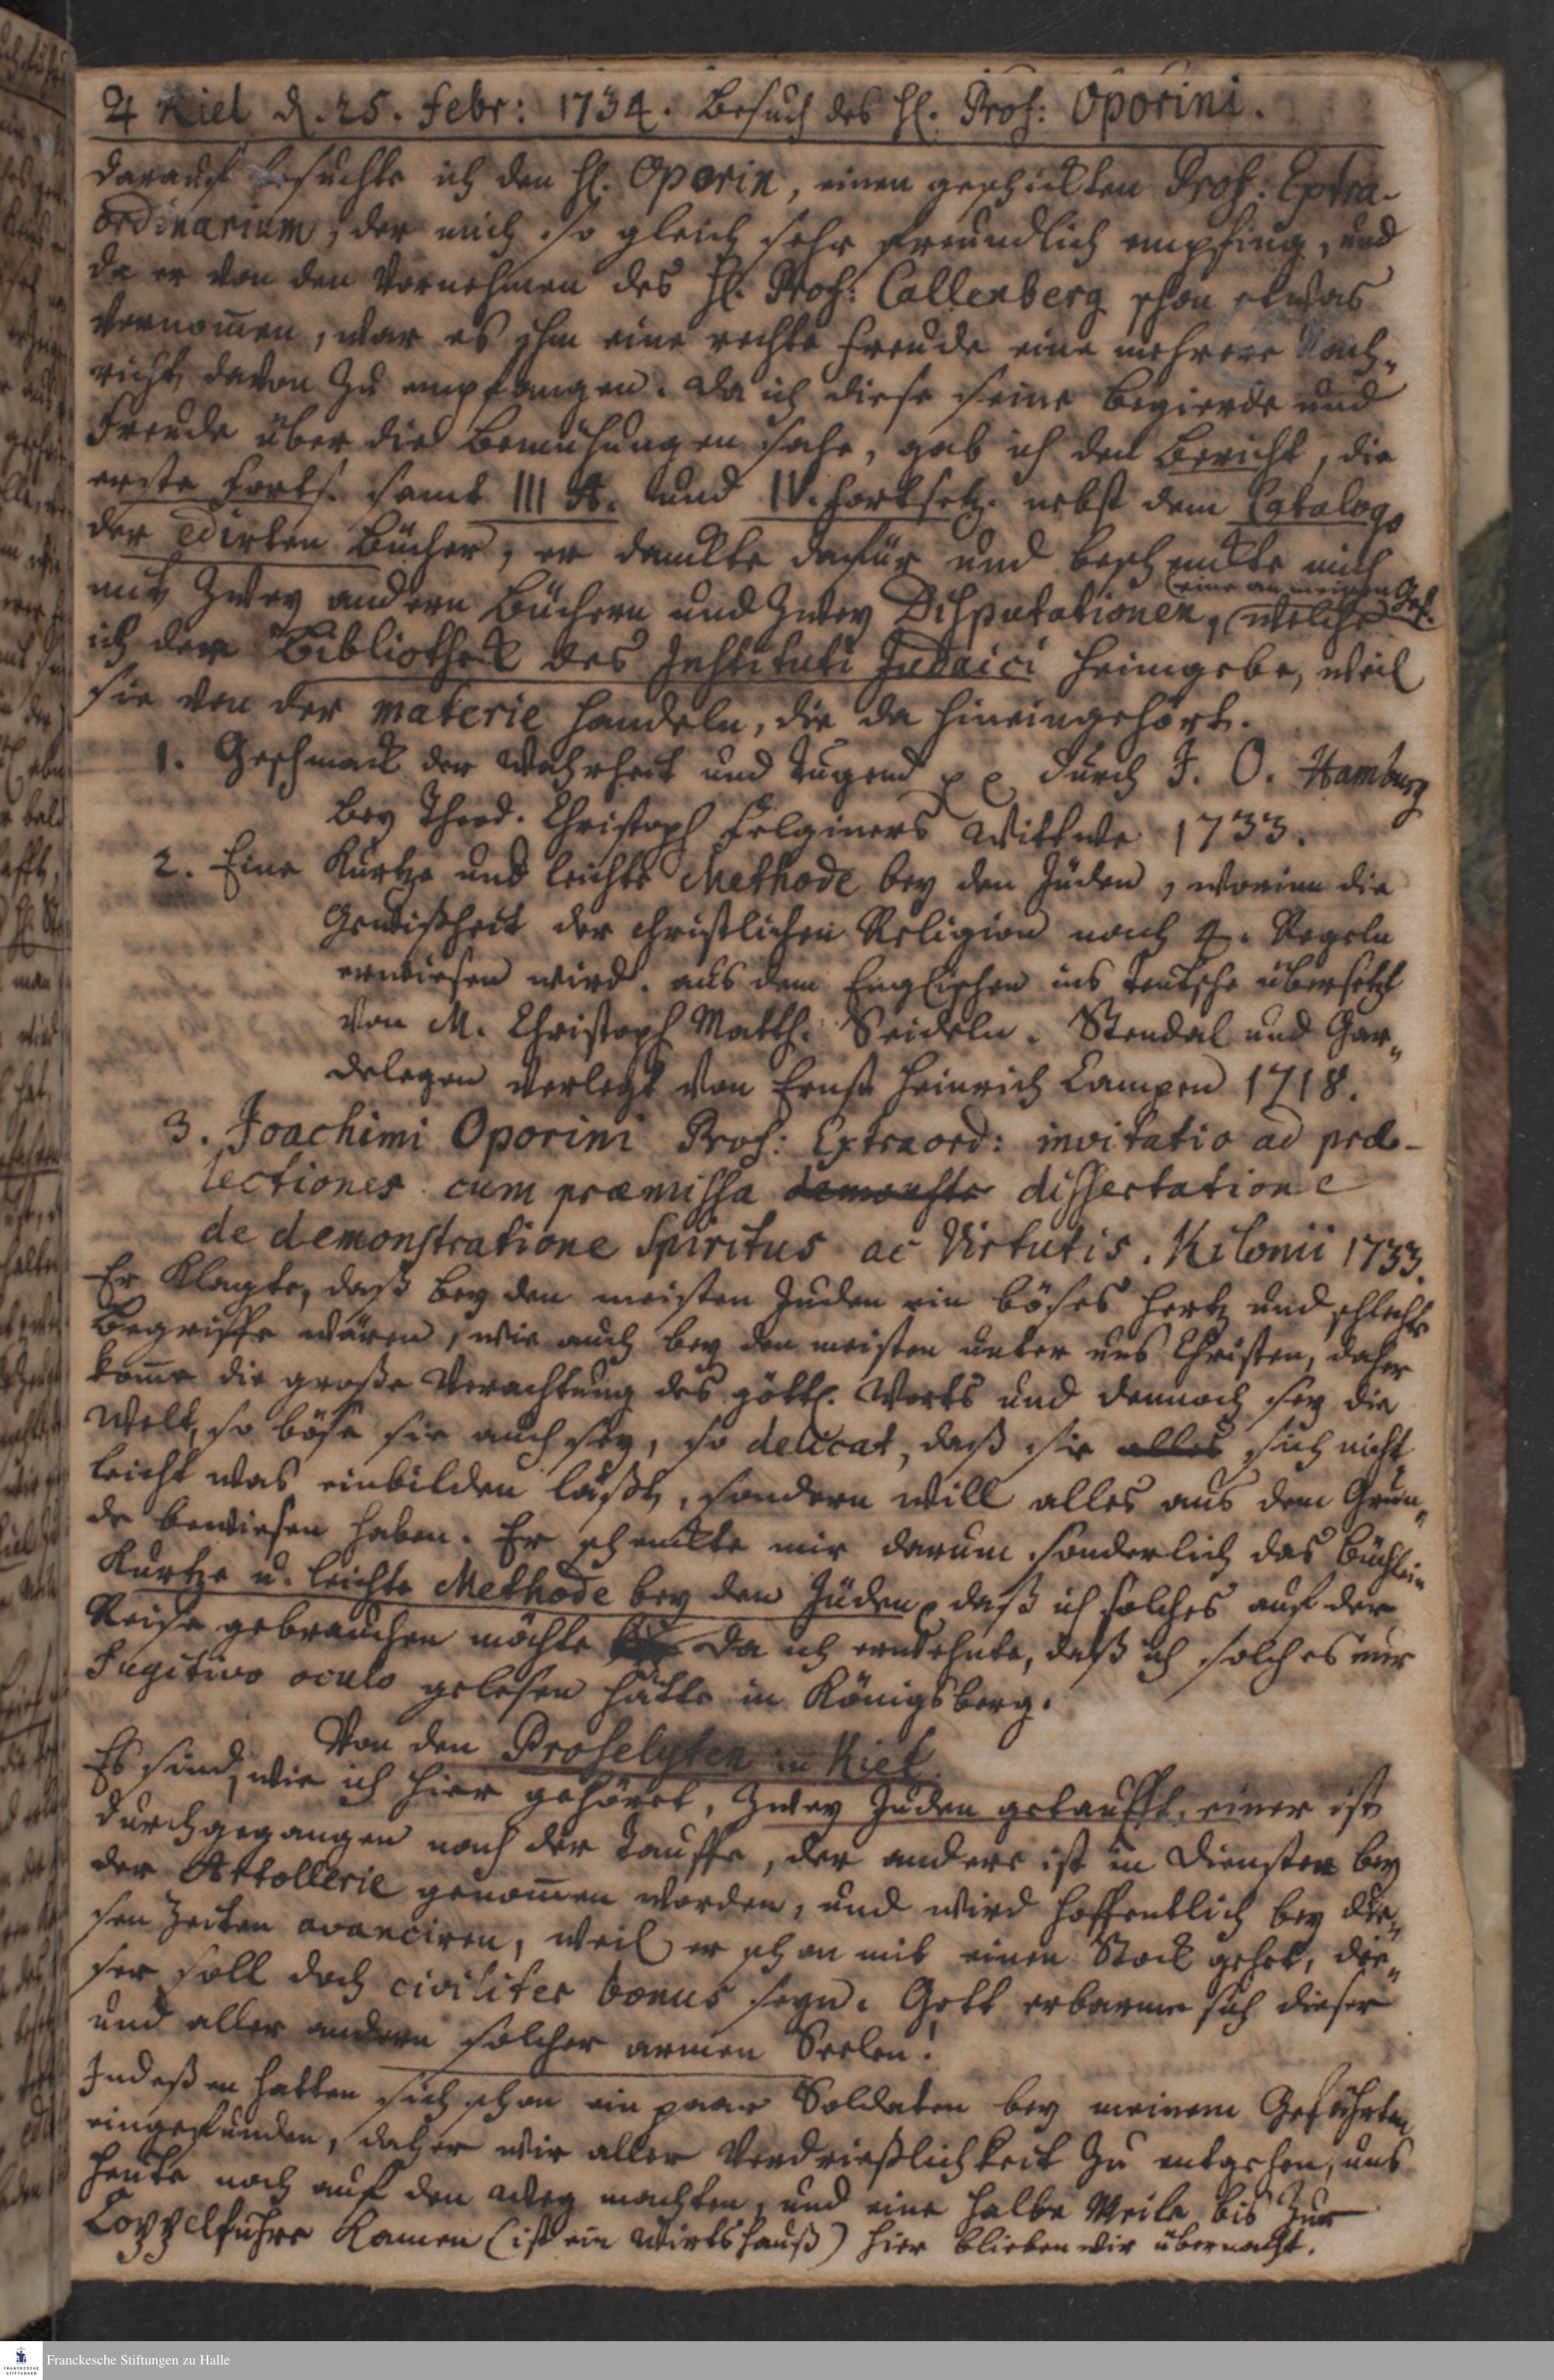 ♃ Kiel d. 25. Febr: 1734. Besuch des H. Prof: Oporini.
darauf besuchte ich den H. Oporin, einen geschickten Prof: Extra-
ordinarium, der mich so gleich sehr freundlich empfing, und
da er von den Vornehmen des H. Prof: Callenberg schon etwas
vernom̅en, war es ihm eine rechte Freude eine mehrere Nach-
richt davon zu empfangen. Da ich diese seine Begierde und
Freude über die Bemühungen sahe, gab ich den Bericht, die
erste Forts. samt III A. und IV. Fortsetz. nebst dem Catalogo
der edirten Bücher, er danckte dafür und beschenckte mich
mit zwey andern Büchern und zwey Disputationen, (eine an meinen Gef.) welche
ich der Bibliotheck des Instituti Judaici heimgebe, weil
sie von der materie handeln, die da hineingehört.
1. Geschmack der Wahrheit und Tugend p p durch J. O. Hamburg
bey Theod. Christoph Felginers Wittwe 1733.
2. Eine Kurtze und leichte Methode bey den Jüden, worinn die
Gewißheit der christlichen Religion nach 4. Regeln
erwiesen wird. aus dem Englischen ins Teutsche übersetzt
von M. Christoph Matth. Seideln. Stendal und Gar-
delegen verlegt von Ernst Heinrich Campen 1718.
3. Joachimi Oporini Prof: Extraord: invitatio ad præ-
lectiones cum præmissa demonstr dissertatione
de demonstratione Spiritus ac Virtutis. Kilonii 1733.
Er klagte, daß bey den meisten Juden ein böses Hertz und schlechte
Begriffe wären, wie auch bey den meisten unter uns Christen, daher
kom̅e die große Verachtung des göttl. Worts und dennoch sey die
Welt, so böse sie auch sey, so delicat, daß sie alles sich nicht
leicht was einbilden läßt, sondern will alles aus dem Grun-
de bewiesen haben. Er schenckte mir darum sonderlich das Büchlein
Kurtze u. leichte Methode bey den Jüden, daß ich solches auf der
Reise gebrauchen möchte Da ich erwehnte, daß ich solches nur
fugitivo oculo gelesen hätte in Königsberg.
Von den Proselyten in Kiel.
Es sind, wie ich hier gehöret, zwey Juden getaufft, einer ist
durchgegangen nach der Tauffe, der andere ist in Diensten bey
der Attollerie genom̅en worden, und wird hoffentlich bey die-
sen Zeiten avanciren, weil er schon mit einen Stock gehet, die-
ser soll doch civiliter bonus seyn. Gott erbarme sich dieser
und aller andern solcher armen Seelen!
Indeßen hatten sich schon ein paar Soldaten bey meinem Gefährten
eingefunden, daher wir aller Verdrießlichkeit zu entgehen, uns
heute noch auf den Weg machten, und eine halbe Meile bis zur
kamen (ist ein Wirtshauß) hier blieben wir übernacht.
Franckesche Stiftungen zu Halle